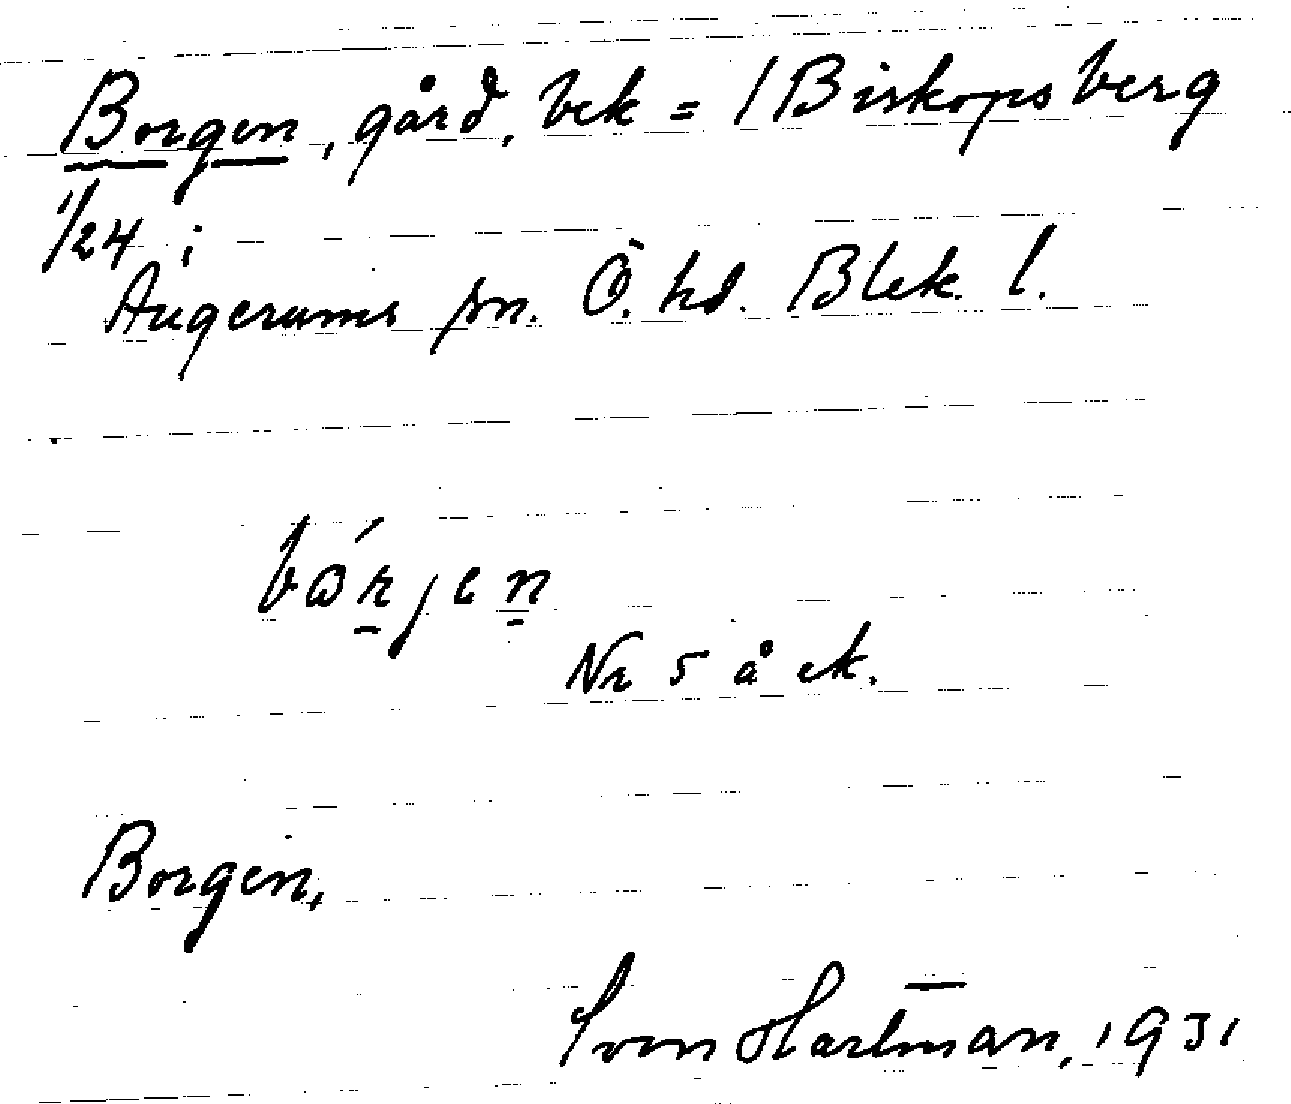 Borgen, gård, bek = /Biskopsberg
1/24 i
Augerums sn. Ö. hd. Blek. l.
bɷ́rjen
Nr 5 å ek.
Borgen,
Sven Hartman, 1931